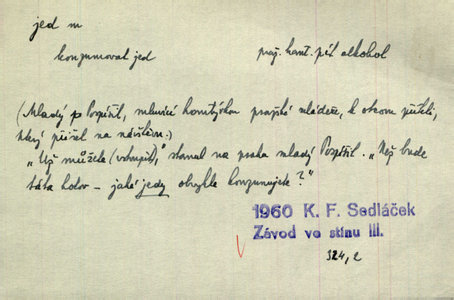 jed m
konzumovat jed
praž. hant. pít alkohol
(Mladý p. Pospíšil, mluvící hantýrkou pražské mládeže, k otcovu příteli,
který přišel na návštěvu.)
„Už můžete (vstoupit),“ stanul na prahu mladý Pospíšil. „Než bude
táta hotov – jaké jedy obvykle konzumujete?“
1960 K. F. Sedláček
Závod ve stínu III.
324,2